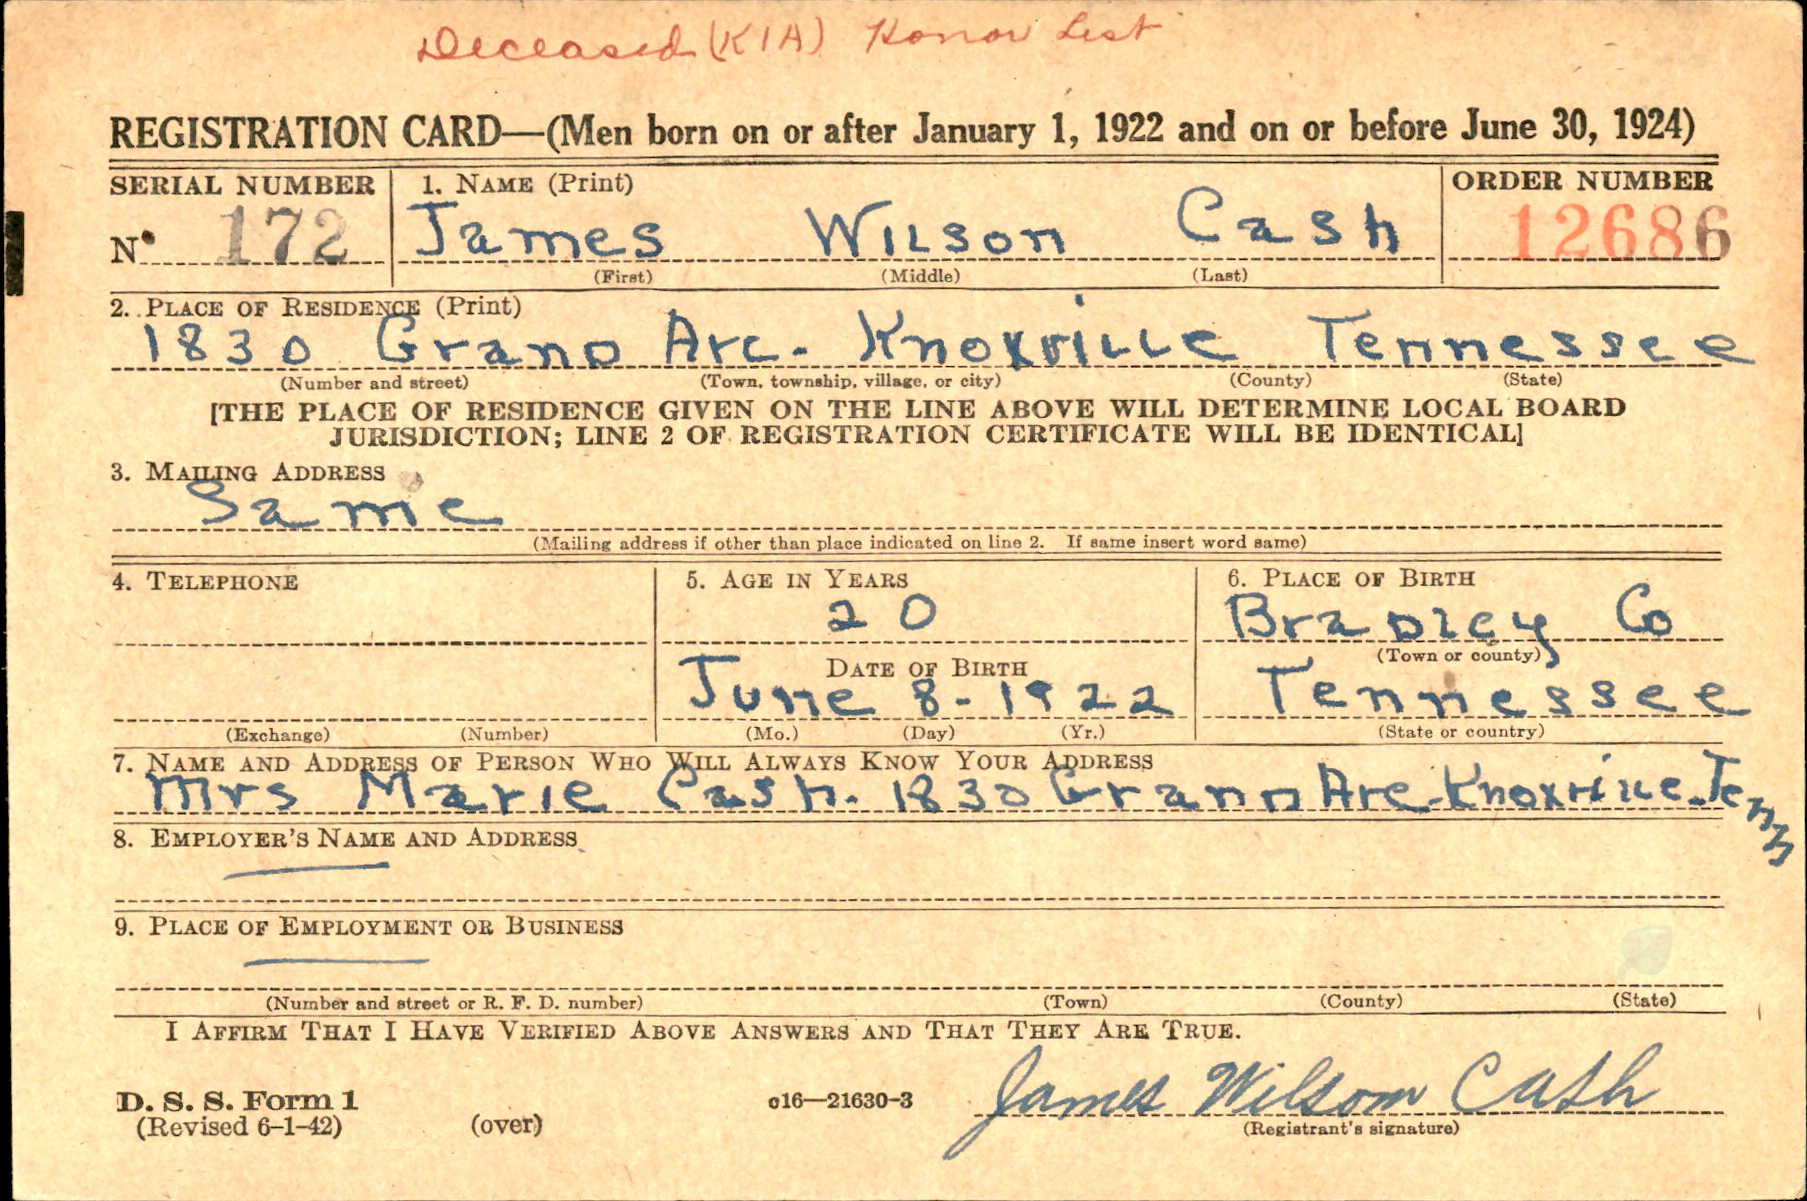 Deceased (KIA) Honor List
REGISTRATION CARD—(Men born on or after January 1, 1922 and on or before June 30, 1924)
SERIAL NUMBER 1. NAME (Print) ORDER NUMBER
No. 172 James Wilson Cash 12686
(First) (Middle) (Last)
2. PLACE OF RESIDENCE (Print)
1830 Grand Ave. Knoxville Tennessee
(Number and street) (Town, township, village, or city) (County) (State)
[THE PLACE OF RESIDENCE GIVEN ON THE LINE ABOVE WILL DETERMINE LOCAL BOARD
JURISDICTION; LINE 2 OF REGISTRATION CERTIFICATE WILL BE IDENTICAL]
3. MAILING ADDRESS
Same
(Mailing address if other than place indicated on line 2. If same insert word same)
4. TELEPHONE 5. AGE IN YEARS 6. PLACE OF BIRTH
20 Bradley Co
(Town or county)
DATE OF BIRTH
June 8-1922 Tennessee
(Exchange) (Number) (Mo.) (Day) (Yr.) (State or country)
7. NAME AND ADDRESS OF PERSON WHO WILL ALWAYS KNOW YOUR ADDRESS
Mrs Marie Cash. 1830 Grand Ave. Knoxville. Tenn
8. EMPLOYER'S NAME AND ADDRESS
9. PLACE OF EMPLOYMENT OR BUSINESS
(Number and street or R. F. D. number) (Town) (County) (State)
I AFFIRM THAT I HAVE VERIFIED ABOVE ANSWERS AND THAT THEY ARE TRUE.
D. S. S. Form 1
(Revised 6-1-42) (over) c16—21630-3 James Wilson Cash
(Registrant's signature)